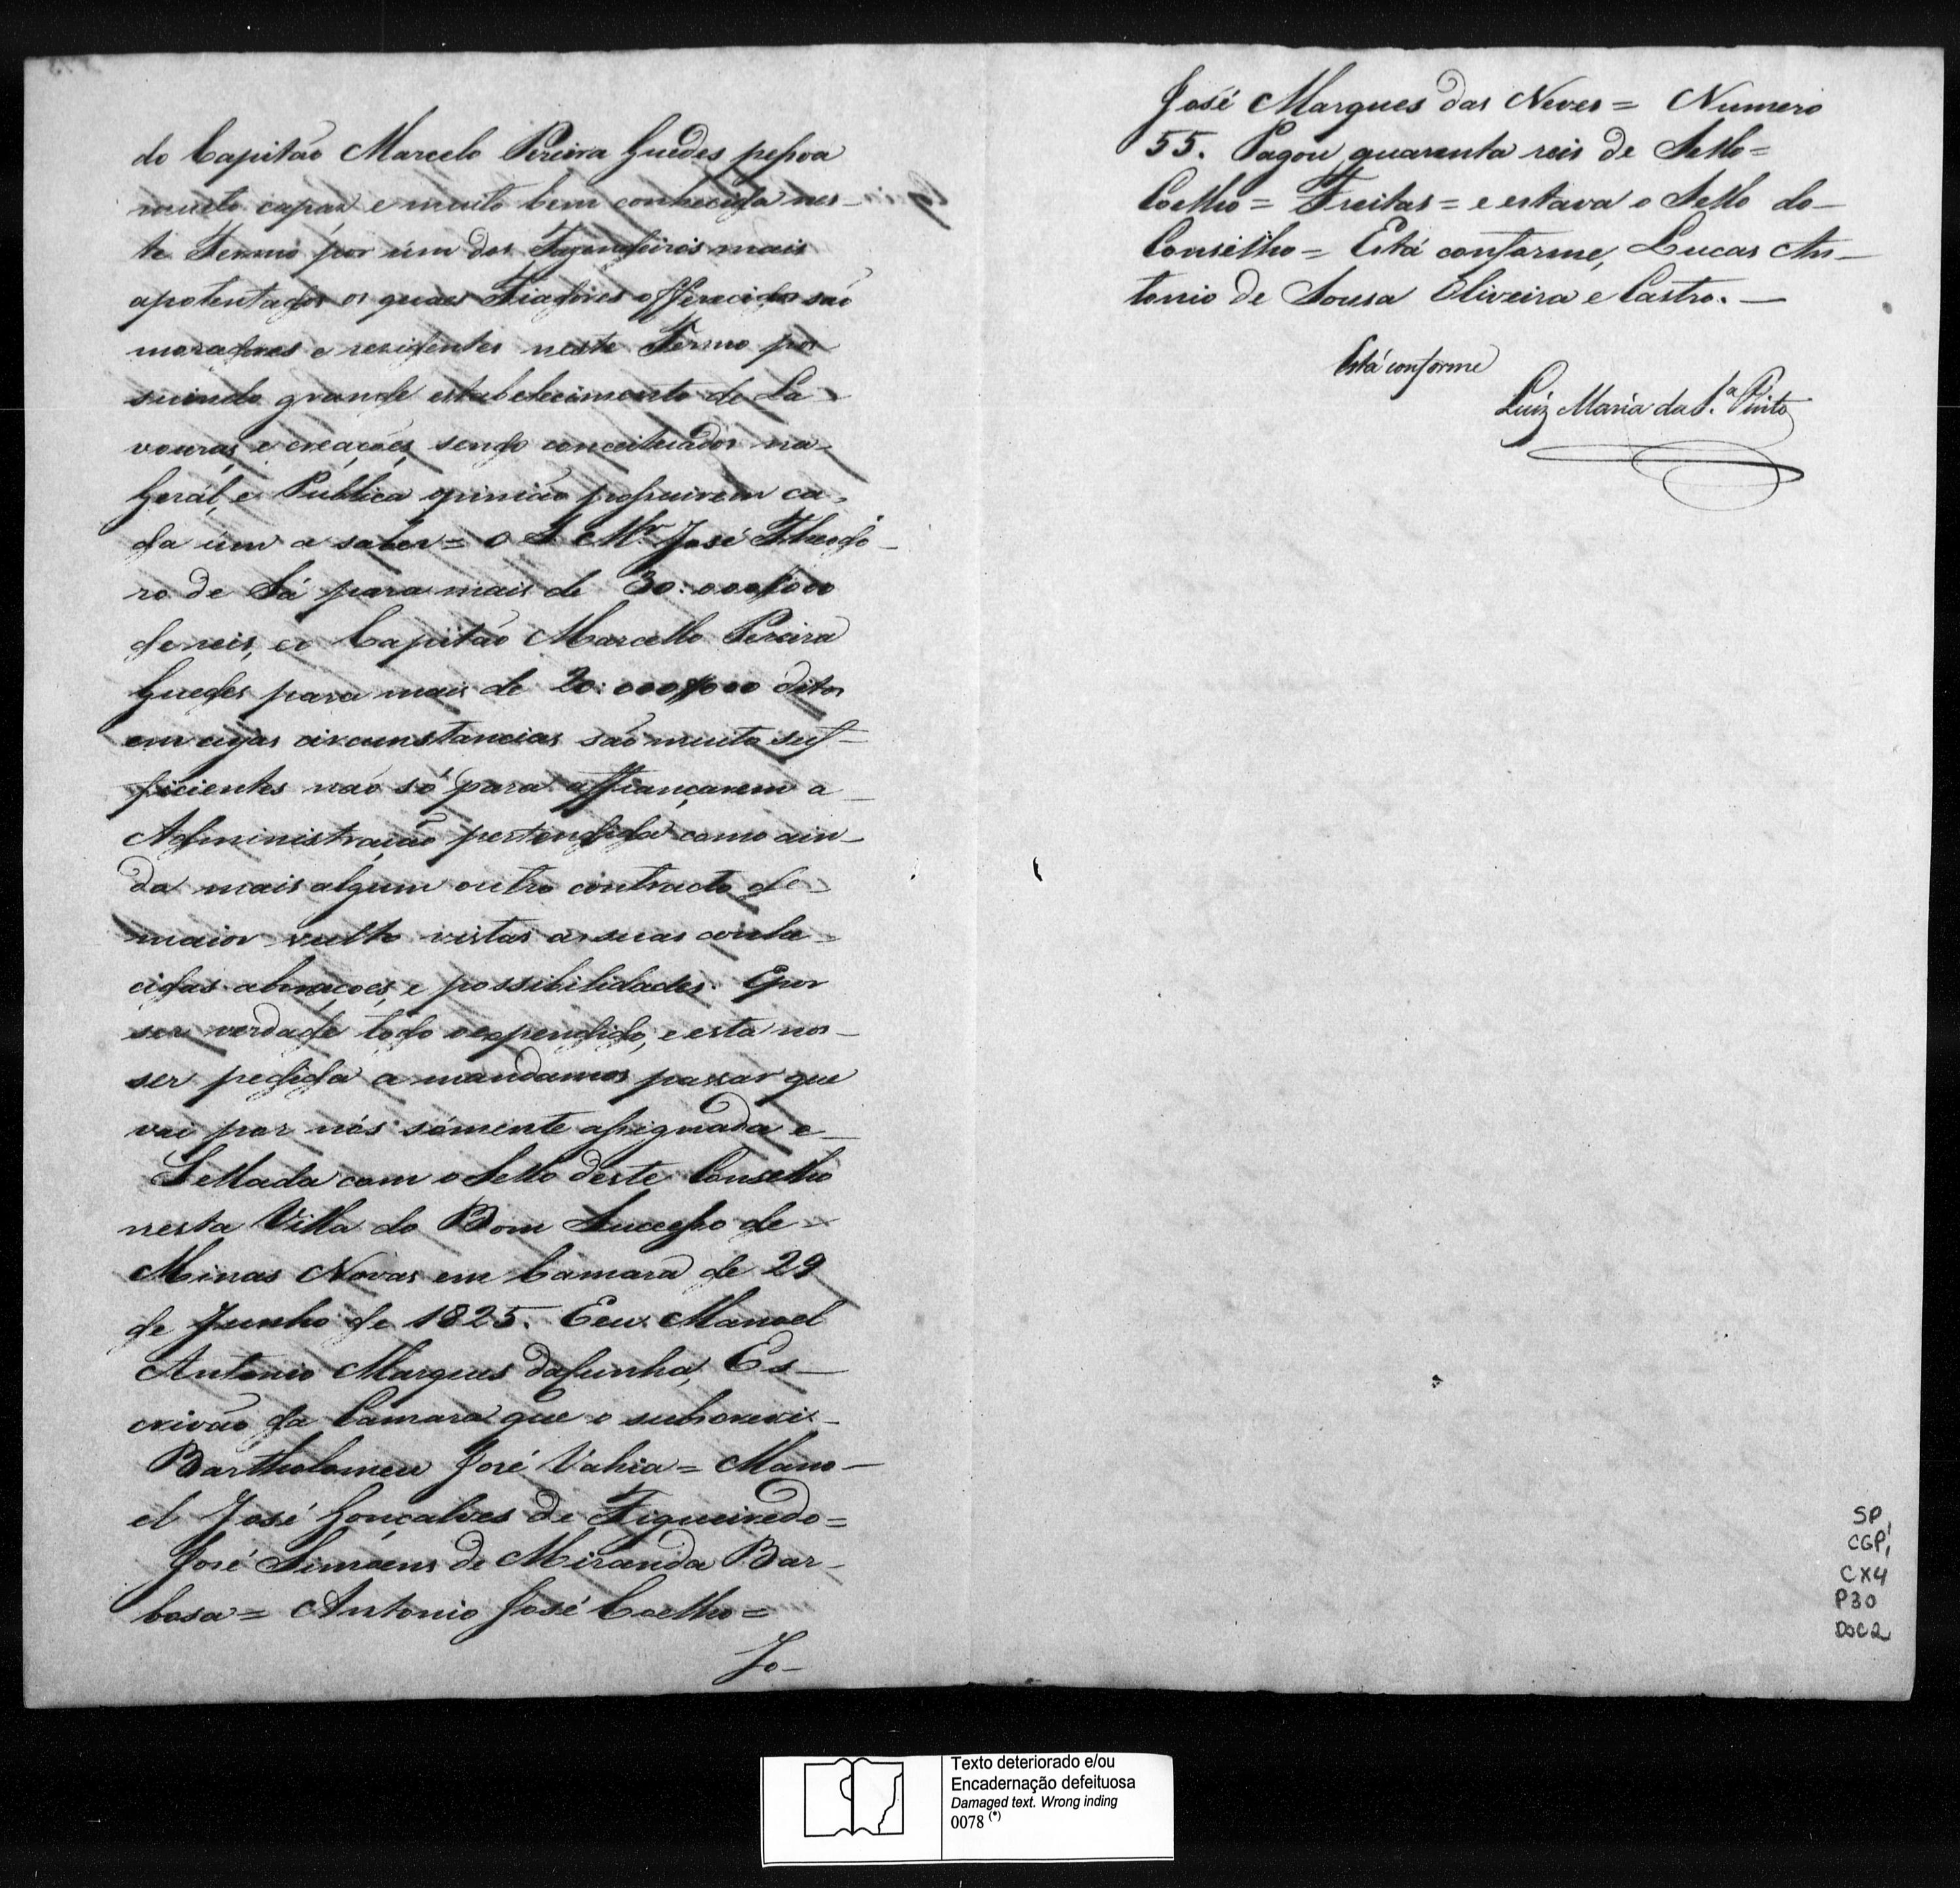 do Capitão Marcelo Pereira Guedes pessoa
muito capaz e muito bem conhecida nes-
te Termo por úm dos Fazendeiros mais
apotentados os quaes Fiadores offerecidos são
moradores e rezidentes neste Termo pos
suindo grande estabelecimento de La-
vouras, e creações, sendo conceituados na
Gerál, e Pública opinião possuirem ca-
da úm a saber = O S. M.or José Theodó-
ro de Sá para mais de 30:000$000
de reis, e o Capitão Marcello Pereira
Guedes para mais de 20:000$000 ditos
em cujas circunstancias são muito suf-
ficientes não só para affiançarem a
Administração pertendida como ain-
da mais algum outro contracto de
maior vulto vistas as suas conhe-
cidas abonações, e possibilidades. E por
ser verdade todo o expendido, e esta nos
ser pedida a mandamos passar que
vai por nós sómente assignada e
Sellada com o Sello deste Conselho
nesta Villa do Bom Sucesso de
Minas Novas em Camara de 29
de Junho de 1825. E eu Manoel
Antonio Marques da Cunha, Es-
crivão da Camara que o subscrevi-
Bartholomeu José Vahia = Mano-
el José Gonçalves de Figueiredo =
José Simoens de Miranda Bar-
bosa = Antonio José Coelho =
Jo-
José Marques das Neves = Numero
55. Pagou quarenta reis de Sello =
Coelho = Freitas = e estava o Sello do
Conselho = Está conforme, Lucas An-
tonio de Sousa Oliveira e Castro. -
Está conforme
Luiz Maria da S.a Pinto
SP,
CGP,
CX4
P30
DOC2
Texto deteriorado e/ou
Encadernação defeituosa
Damaged text. Wrong inding
0078 (*)